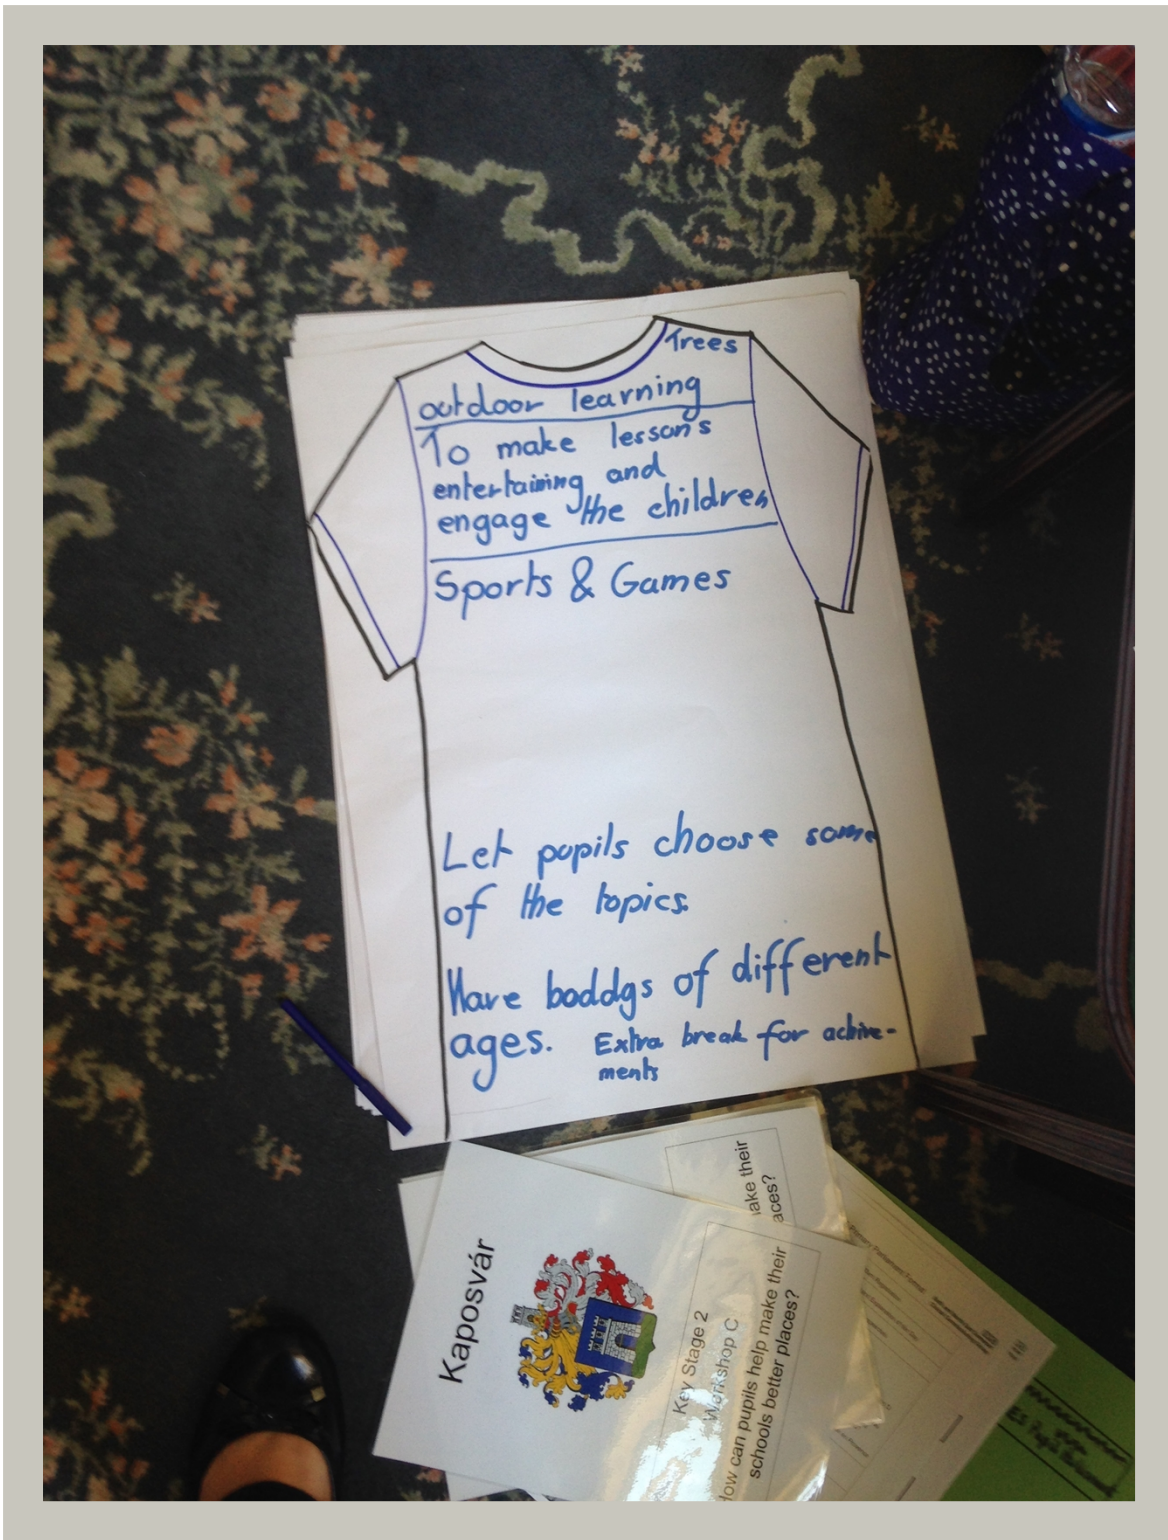 Trees
outdoor learning
To make lesson's
entertaining and
engage the children
Sports & Games
Let pupils choose some
of the topics.
Have boddys of different
ages. Extra break for achive-
ments
Kaposvár
Key Stage 2
Workshop C
How can pupils help make their
schools better places?
ake their
aces?